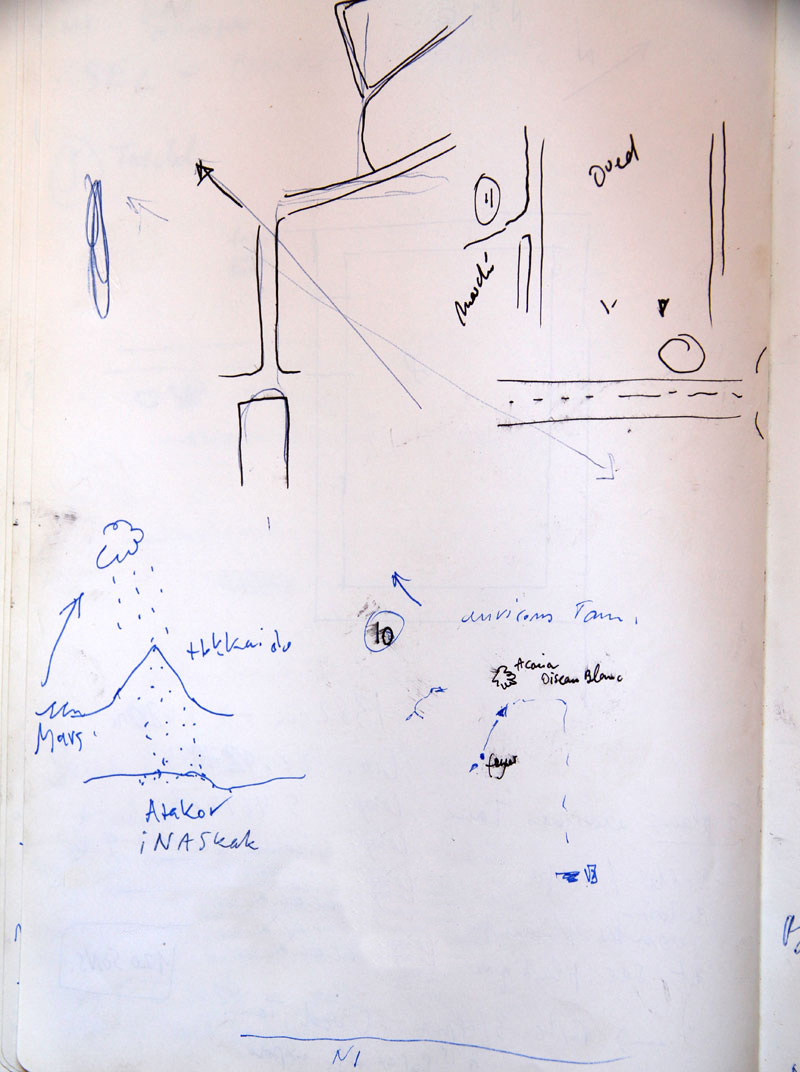 Oued
11
Marché
10
environs Tam.
Hokkaido
Acacia
Oiseau Blanc
Mars.
foyer
Atakor
iNASKak
N1